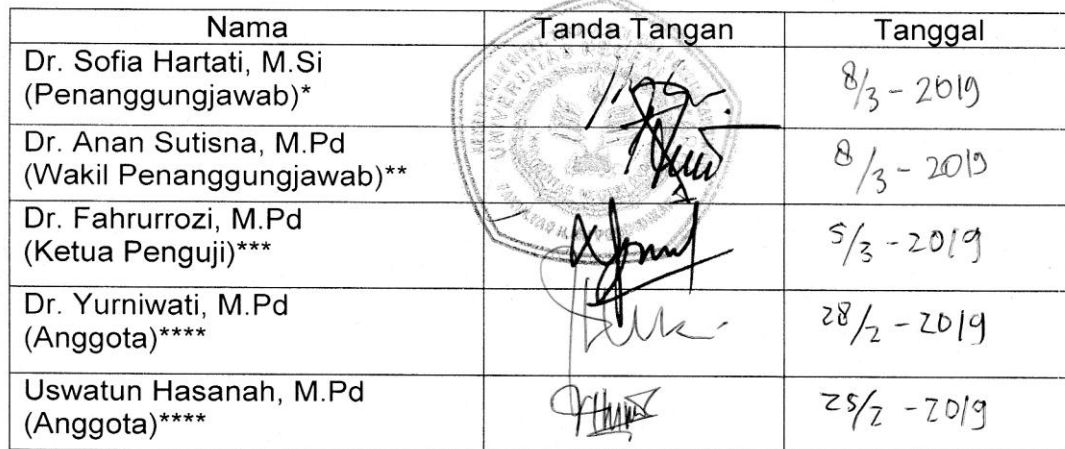 Nama Tanda Tangan Tanggal
Dr. Sofia Hartati, M.Si
(Penanggungjawab)* 8/3 - 2019
Dr. Anan Sutisna, M.Pd
(Wakil Penanggungjawab)** 8/3 - 2019
Dr. Fahrurrozi, M.Pd
(Ketua Penguji)*** 5/3 - 2019
Dr. Yurniwati, M.Pd
(Anggota)**** 28/2 - 2019
Uswatun Hasanah, M.Pd
(Anggota)**** 25/2 - 2019